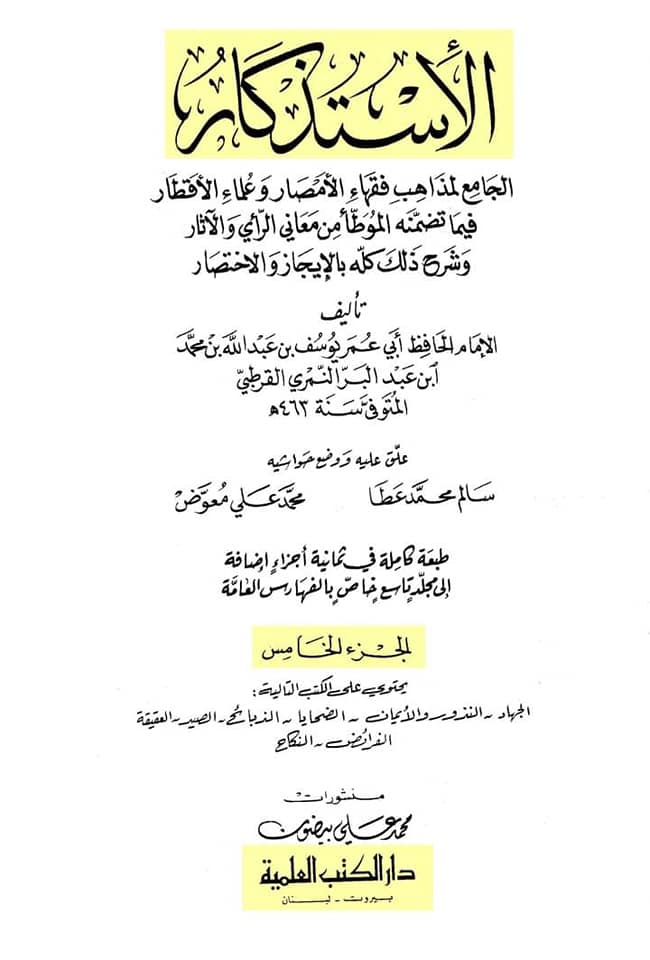 الاستذكار
الجامع لمذاهب فقهاء الأمصار وعلماء الأقطار
فيما تضمنه الموطأ من معاني الرأي والآثار
وشرح ذلك كله بالإيجاز والاختصار
تأليف
الإمام الحافظ أبي عمر يوسف بن عبد الله بن محمد
ابن عبد البر النمري القرطبي
المتوفى سنة ٤٦٣ه
علق عليه ووضع حواشيه
سالم محمد عطا محمد علي معوض
طبعة كاملة في ثمانية أجزاء إضافة
إلى مجلد تاسع خاص بالفهارس العامة
الجزء الخامس
يحتوي على الكتب التالية:
الجهاد - النذور والأيمان - الضحايا - الذبائح - الصيد - العقيقة
الفرائض - النكاح
منشورات
محمد علي بيضون
دار الكتب العلمية
بيروت - لبنان